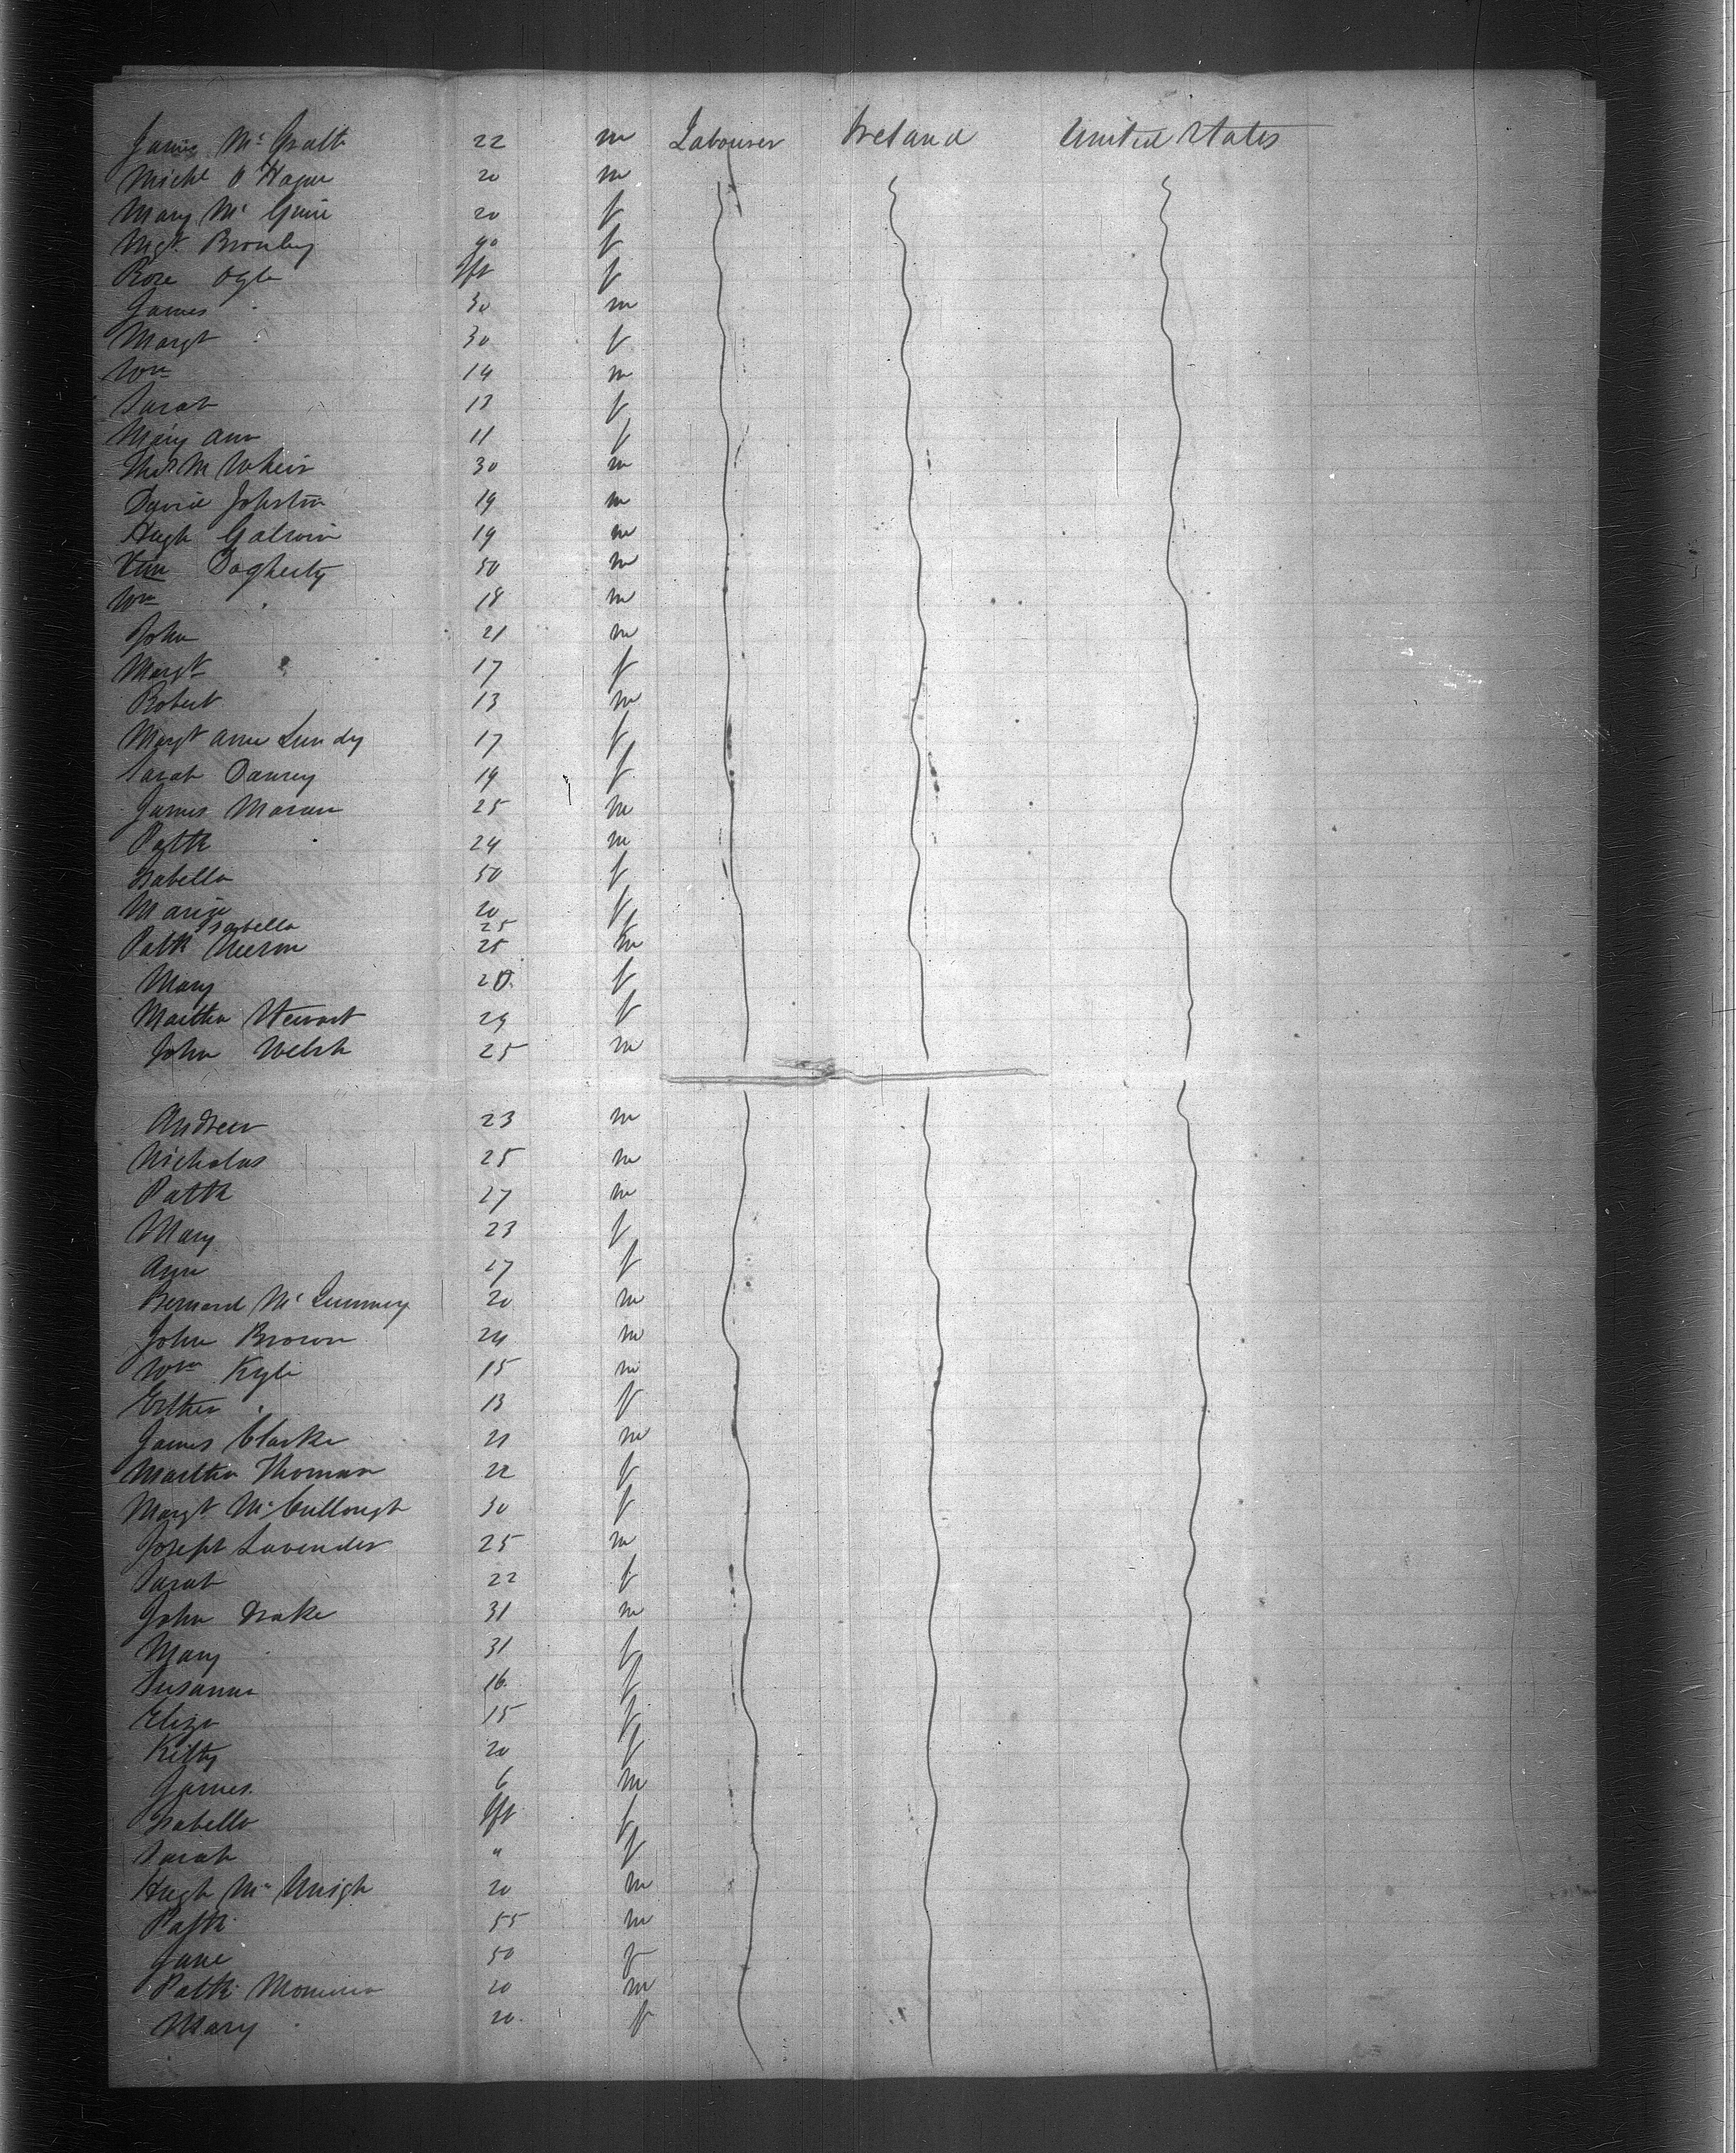 James Mc Gratt 22 m Labourer Ireland United States
Michl O'Hagur 20 m
Mary Mc Guire 20 f
Mgt. 40 f
Rose Ogle Ift f
James 30 m
Margt 30 f
Wm 14 m
Sarah 13 f
Mary Ann 11 f
Thos M Wheir 30 m
David Johnston 19 m
Hugh 19 m
Dogherty 50 m
Wm 18 m
John 21 m
Margt 17 f
Robert 13 m
Margt Ann Lundy 17 f
Sarah 19 f
James Moran 25 m
Patk 24 m
Isabella 50 f
Maria 20 f
Isabella 25 f
Patk 25 m
Mary 20 f
Martha Stewart 29 f
John Welsh 25 m
Andrew 23 m
Nicholas 25 m
Patk 27 m
Mary 23 f
Ann 17 f
Bernard Mc 20 m
John Brown 24 m
Wm Kyle 15 m
Esther 13 f
James Clarke 21 m
Martha Thoman 22 f
Margt McCullough 30 f
Joseph Lavender 25 m
Sarah 22 f
John Drake 31 m
Mary 31 f
Susanna 16 f
Eliza 15 f
Kitty 20 f
James 6 m
Isabella Ift f
Sarah " f
Hugh Mc 20 m
Patk 55 m
Jane 50 f
Patk 20 m
Mary 20 f